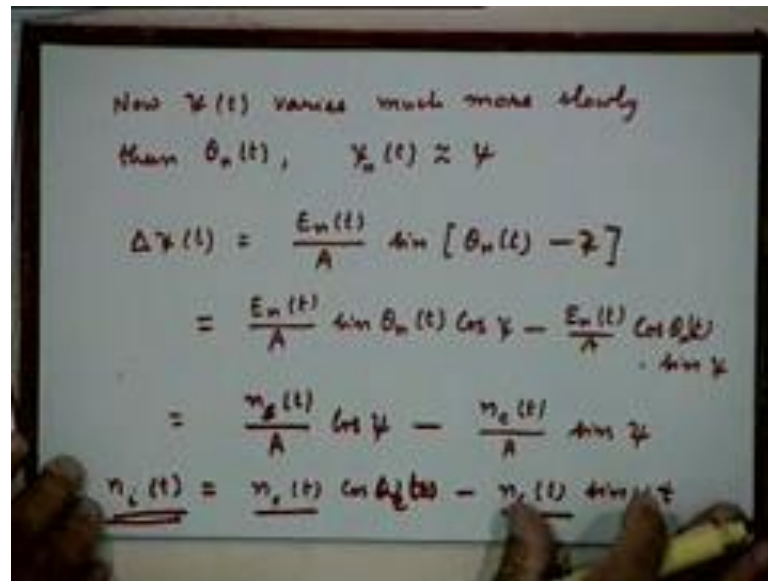 Now ψ(t) varies much more slowly
than θₙ(t), ψₙ(t) ≈ ψ
Δψ(t) = Eₙ(t)/A sin [θₙ(t) − ψ]
= Eₙ(t)/A sin θₙ(t) cos ψ − Eₙ(t)/A cos θₙ(t)
· sin ψ
= nₛ(t)/A cos ψ − n_c(t)/A sin ψ
nᵢ(t) = n_c(t) cos − nₛ(t) sin